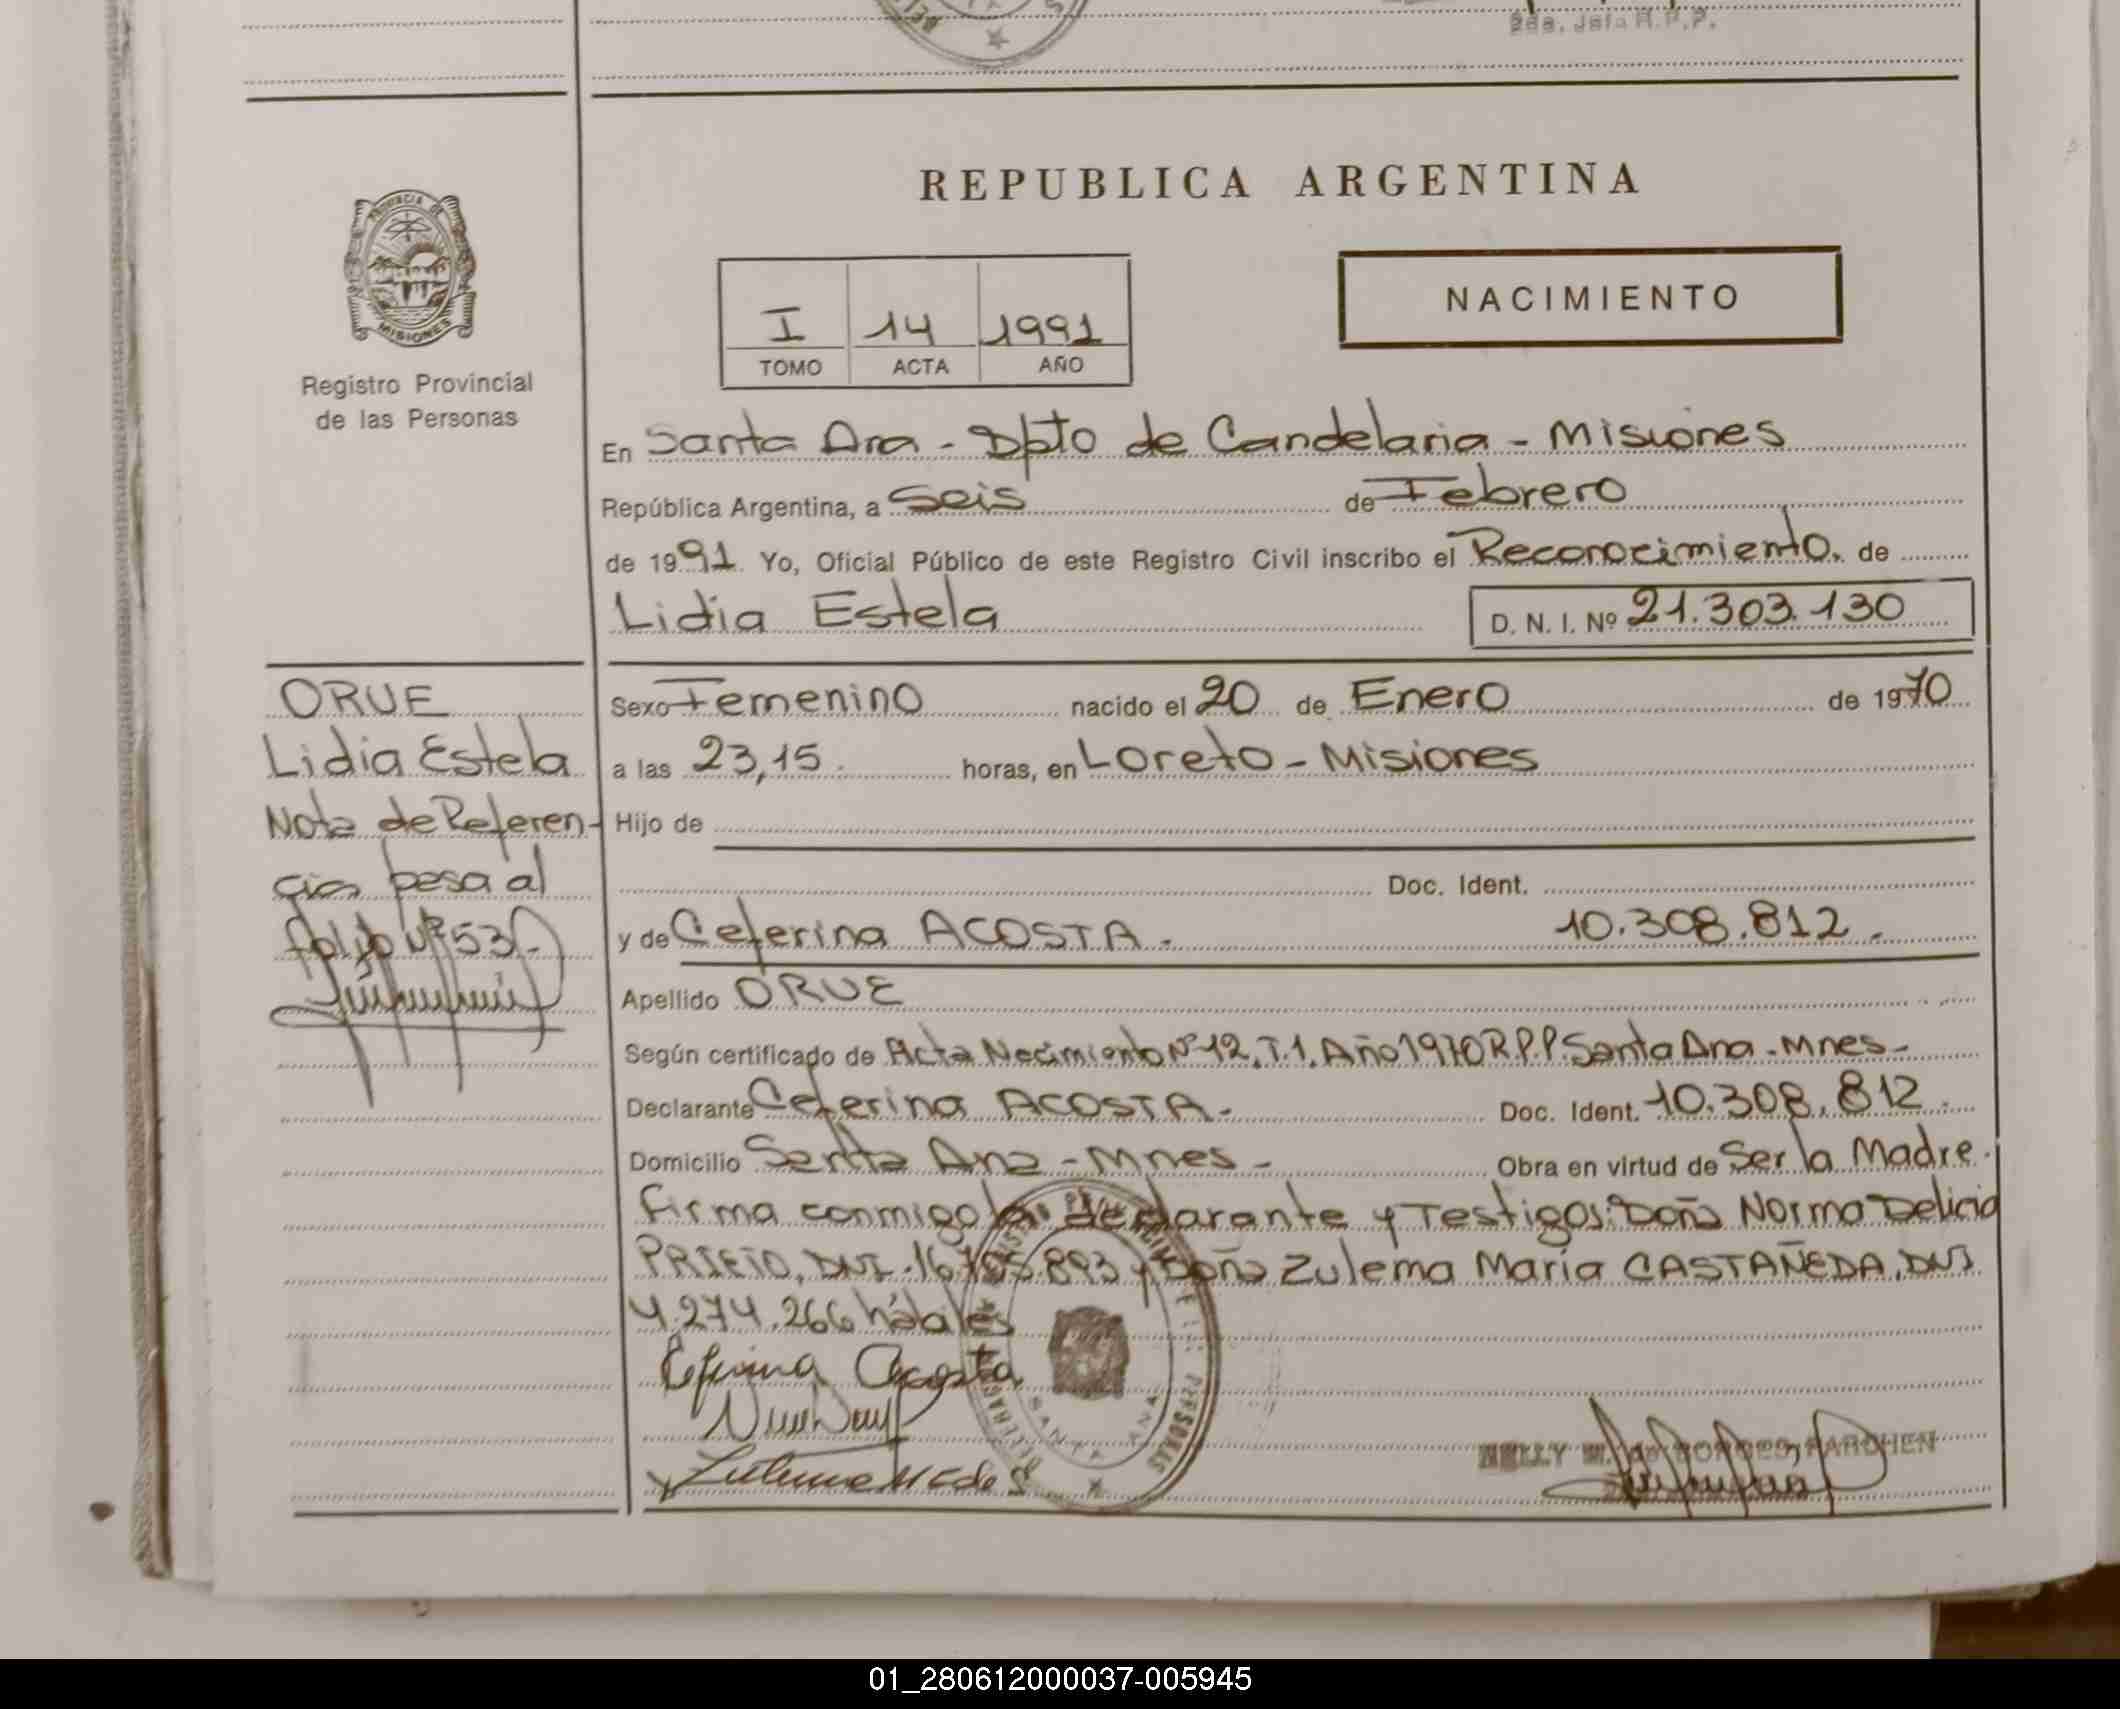 2da. Jefa R.P.P.
REPUBLICA ARGENTINA
PROVINCIA DE
MISIONES
Registro Provincial
de las Personas
I 14 1991
TOMO ACTA AÑO
NACIMIENTO
En Santa Ana - Dpto de Candelaria - Misiones
República Argentina, a Seis de Febrero
de 1991 Yo, Oficial Público de este Registro Civil inscribo el Reconocimiento. de
Lidia Estela D. N. I. Nº 21.303.130
ORUE
Lidia Estela
Nota de Referen-
cia pasa al
folio Nº 53.-
Sexo Femenino nacido el 20 de Enero de 1970
a las 23,15. horas, en Loreto - Misiones
Hijo de
Doc. Ident.
y de Ceferina ACOSTA. 10.308.812.
Apellido ORUE
Según certificado de Acta Nacimiento Nº 12, T.1, Año 1970 R.P.P. Santa Ana - Mnes-
Declarante Ceferina ACOSTA.- Doc. Ident. 10.308.812.
Domicilio Santa Ana - Mnes - Obra en virtud de Ser la Madre.
Firma conmigo la declarante y Testigos: Doña Norma Delicia
PRIETO, DNI. 16.705.893 y Doña Zulema María CASTAÑEDA, DNI
4.274.266 hábiles
Ceferina Acosta
SANTA ANA
NELLY M. de BORGES PARCHEN
01_280612000037-005945